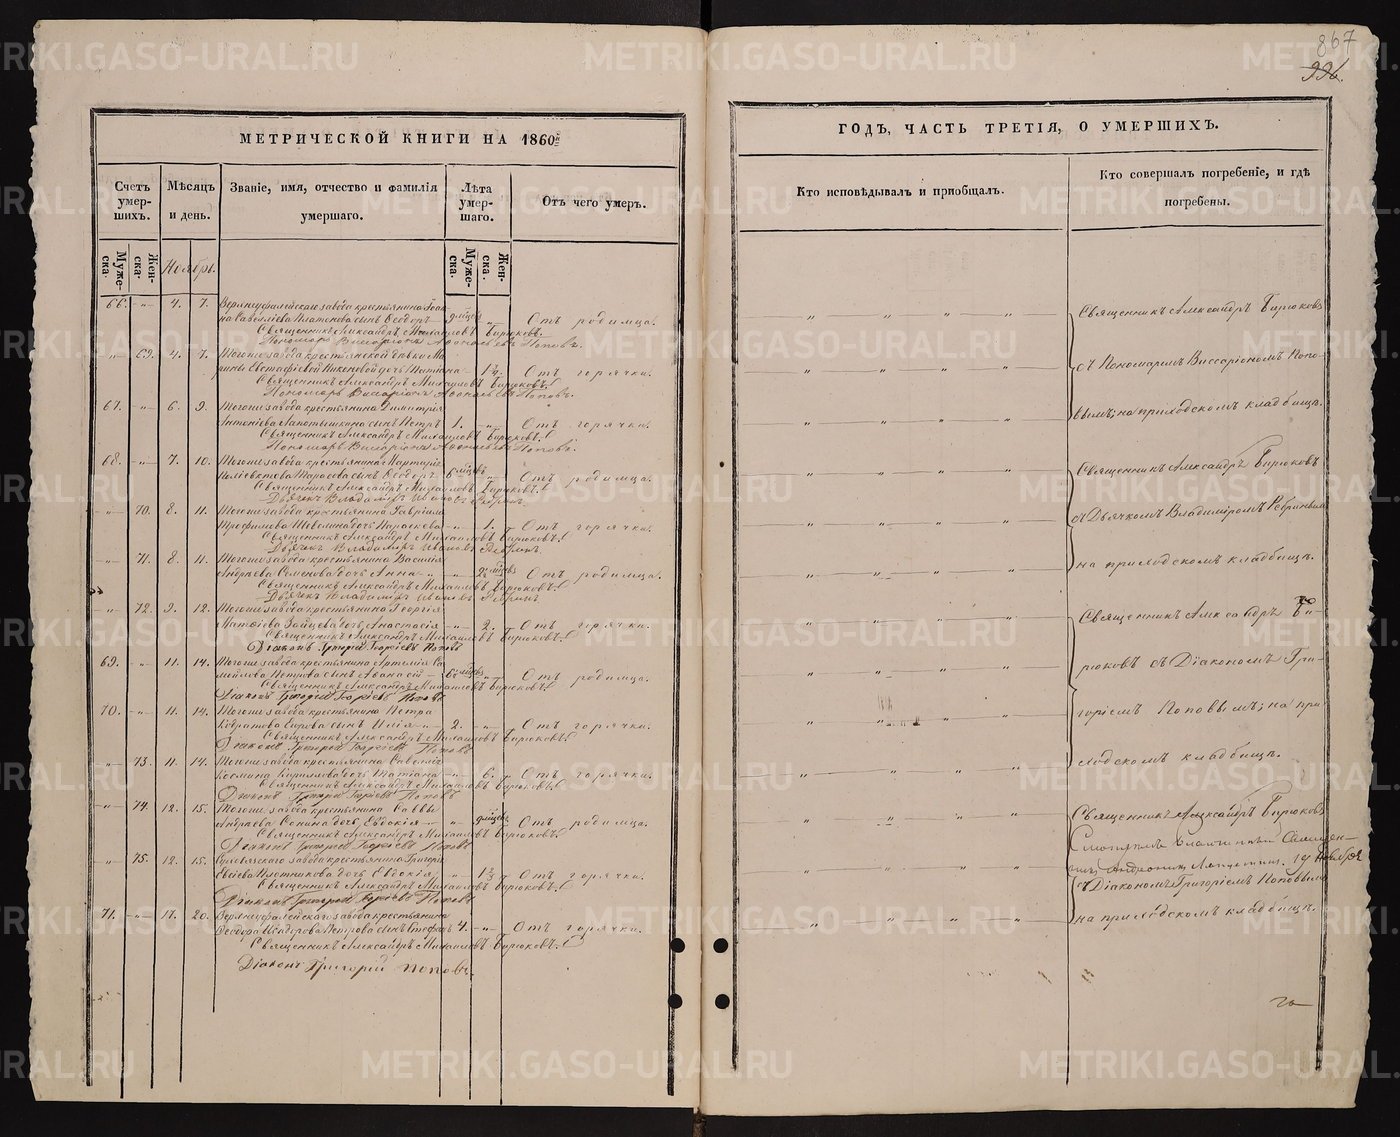 867
996.
МЕТРИЧЕСКОЙ КНИГИ НА 1860й
Счетъ умер-шихъ.
Мѣсяцъ и день.
Званіе, имя, отчество и фамилія умершаго.
Лѣта умер-шаго.
Отъ чего умеръ.
Муже-ска.
Жен-ска.
Ноябрь.
Муже-ска.
Жен-ска.
66. " 4. 7. Верхнеуфалейскаго завода крестьянина
сынъ Ѳеодоръ мѣсяцъ " Отъ родимца.
Священникъ Александръ Михаиловъ Бирюковъ.
Пономарь Виссаріонъ Аѳанасьевъ Поповъ.
" 69. 4. 7. Тогоже завода крестьянской дѣвки Ма-
рины Евстафіевой Никоновой дочь Татіана " 1½. Отъ горячки.
Священникъ Александръ Михаиловъ Бирюковъ.
Пономарь Виссаріонъ Аѳанасьевъ Поповъ.
67. " 6. 9. Тогоже завода крестьянина Димитрія
Антоніева сынъ Петръ 1. " Отъ горячки.
Священникъ Александръ Михаиловъ Бирюковъ.
Пономарь Виссаріонъ Аѳанасьевъ Поповъ.
68. " 7. 10. Тогоже завода крестьянина
Тарасова сынъ Ѳеодоръ 6 мѣсяцъ " Отъ родимца.
Священникъ Александръ Михаиловъ Бирюковъ.
Дьячекъ Владиміръ Ивановъ Ребринъ.
" 70. 8. 11. Тогоже завода крестьянина Гавріила
Трофимова дочь Параскева " 1. Отъ горячки.
Священникъ Александръ Михаиловъ Бирюковъ.
Дьячекъ Владиміръ Ивановъ Ребринъ.
" 71. 8. 11. Тогоже завода крестьянина Василія
Андреева Семенова дочь Анна " мѣсяцъ Отъ родимца.
Священникъ Александръ Михаиловъ Бирюковъ.
Дьячекъ Владиміръ Ивановъ Ребринъ.
" 72. 9. 12. Тогоже завода крестьянина Георгія
Матѳіева Зайцева дочь Анастасія " 2. Отъ горячки.
Священникъ Александръ Михаиловъ Бирюковъ.
Діаконъ Григорій Георгіевъ Поповъ
69. " 11. 14. Тогоже завода крестьянина Артемія Са-
мойлова Петрова сынъ Аѳанасій 6 мѣсяцъ " Отъ родимца.
Священникъ Александръ Михаиловъ Бирюковъ.
Діаконъ Григорій Георгіевъ Поповъ
70. " 11. 14. Тогоже завода крестьянина Петра
сынъ Илія 2. " Отъ горячки.
Священникъ Александръ Михаиловъ Бирюковъ.
Діаконъ Григорій Георгіевъ Поповъ
" 73. 11. 14. Тогоже завода крестьянина Савватія
Кириллова дочь Татіана " 6. Отъ горячки.
Священникъ Александръ Михаиловъ Бирюковъ.
Діаконъ Григорій Георгіевъ Поповъ
" 74. 12. 15. Тогоже завода крестьянина Саввы
Андреева дочь Евдокія " мѣсяцъ Отъ родимца.
Священникъ Александръ Михаиловъ Бирюковъ.
Діаконъ Григорій Георгіевъ Поповъ
" 75. 12. 15. завода крестьянина Григорія
Плотникова дочь Евдокія " Отъ горячки.
Священникъ Александръ Михаиловъ Бирюковъ.
Діаконъ Григорій Георгіевъ Поповъ
71. " 17. 20. Верхнеуфалейскаго завода крестьянина
Ѳеодора Петрова сынъ Стефанъ 4. " Отъ горячки.
Священникъ Александръ Михаиловъ Бирюковъ.
Діаконъ Григорій Поповъ.
ГОДЪ, ЧАСТЬ ТРЕТІЯ, О УМЕРШИХЪ.
Кто исповѣдывалъ и пріобщалъ.
Кто совершалъ погребеніе, и гдѣ погребены.
Священникъ Александръ Бирюковъ
съ Пономаремъ Виссаріономъ Попо-
вымъ; на приходскомъ кладбищѣ.
Священникъ Александръ Бирюковъ
съ Дьячкомъ Владиміромъ Ребринымъ
на приходскомъ кладбищѣ.
Священникъ Александръ Би-
рюковъ съ Діакономъ Гри-
горіемъ Поповымъ; на при-
ходскомъ кладбищѣ.
Священникъ Александръ Бирюковъ
Смотрѣлъ Благочинный Священ-
никъ 19 Ноября
съ Діакономъ Григоріемъ Поповымъ
на приходскомъ кладбищѣ.
METRIKI.GASO-URAL.RU